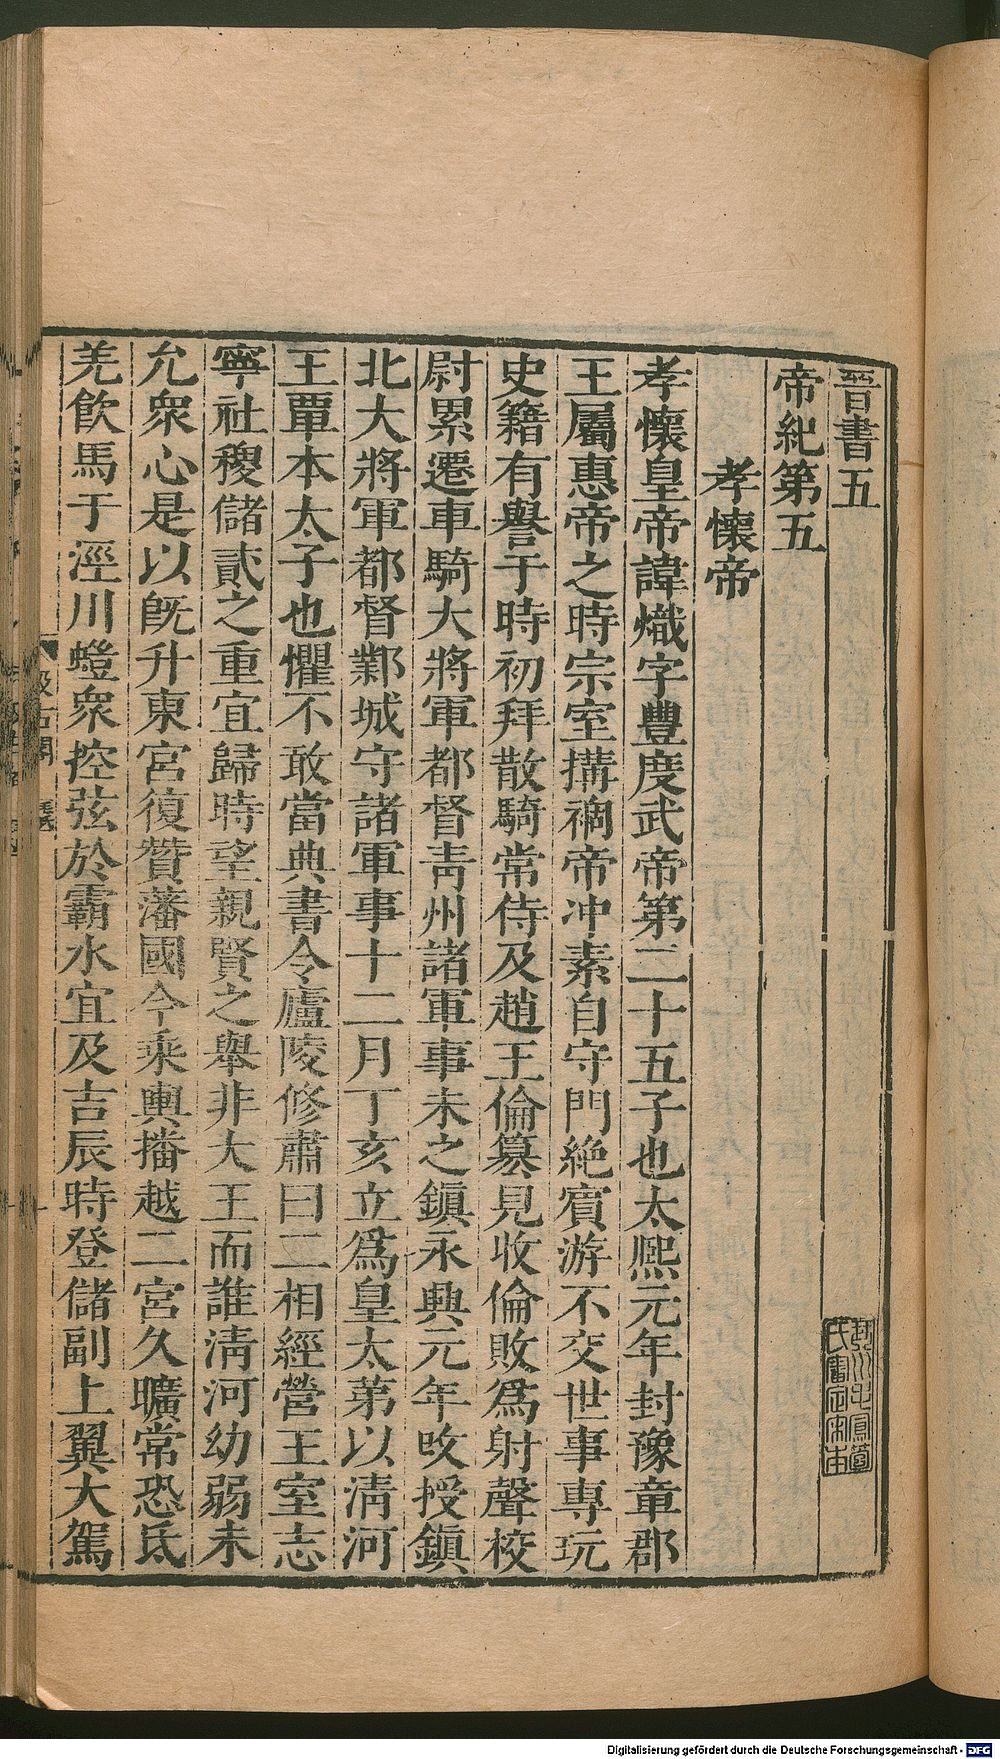 晉書五
帝紀第五
孝懷帝
孝懷皇帝諱熾字豐度武帝第二十五子也太熙元年封豫章郡
王屬惠帝之時宗室搆禍帝冲素自守門絶賓游不交世事專玩
史籍有譽于時初拜散騎常侍及趙王倫篡見收倫敗爲射聲校
尉累遷車騎大將軍都督靑州諸軍事未之鎮永興元年攺授鎮
北大將軍都督鄴城守諸軍事十二月丁亥立爲皇太弟以淸河
王覃本太子也懼不敢當典書令廬陵修肅曰二相經營王室志
寧社稷儲貳之重宜歸時望親賢之舉非大王而誰淸河幼弱未
允衆心是以旣升東宮復贊藩國今乘輿播越二宮久曠常恐氐
羌飮馬于涇川螘衆控弦於霸水宜及吉辰時登儲副上翼大駕
汲古閣
Digitalisierung gefördert durch die Deutsche Forschungsgemeinschaft - DFG